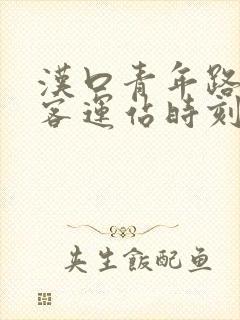 漢口青年路
客運佔時刻
夹生飯配鱼